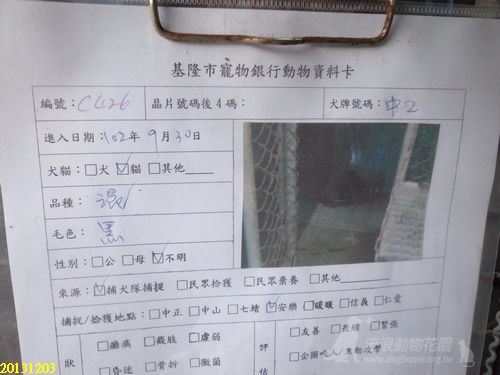 基隆市寵物銀行動物資料卡
編號：C426 晶片號碼後4碼： 犬牌號碼：中2
進入日期：102年9月30日
犬貓：□犬 ☑貓 □其他
品種：混
毛色：黑
性別：□公 □母 ☑不明
來源：☑捕犬隊捕捉 □民眾拾獲 □民眾棄養 □其他
捕捉/拾獲地點：□中正 □中山 □七堵 ☑安樂 □暖暖 □信義 □仁愛
狀 □癱瘓 □截肢 □虛弱 評 □友善 □長縮 □緊張
□昏迷 □骨折 □黴菌 估 □企圖咬人/主動攻擊
流浪動物花園
www.doghome.org.tw
20131203